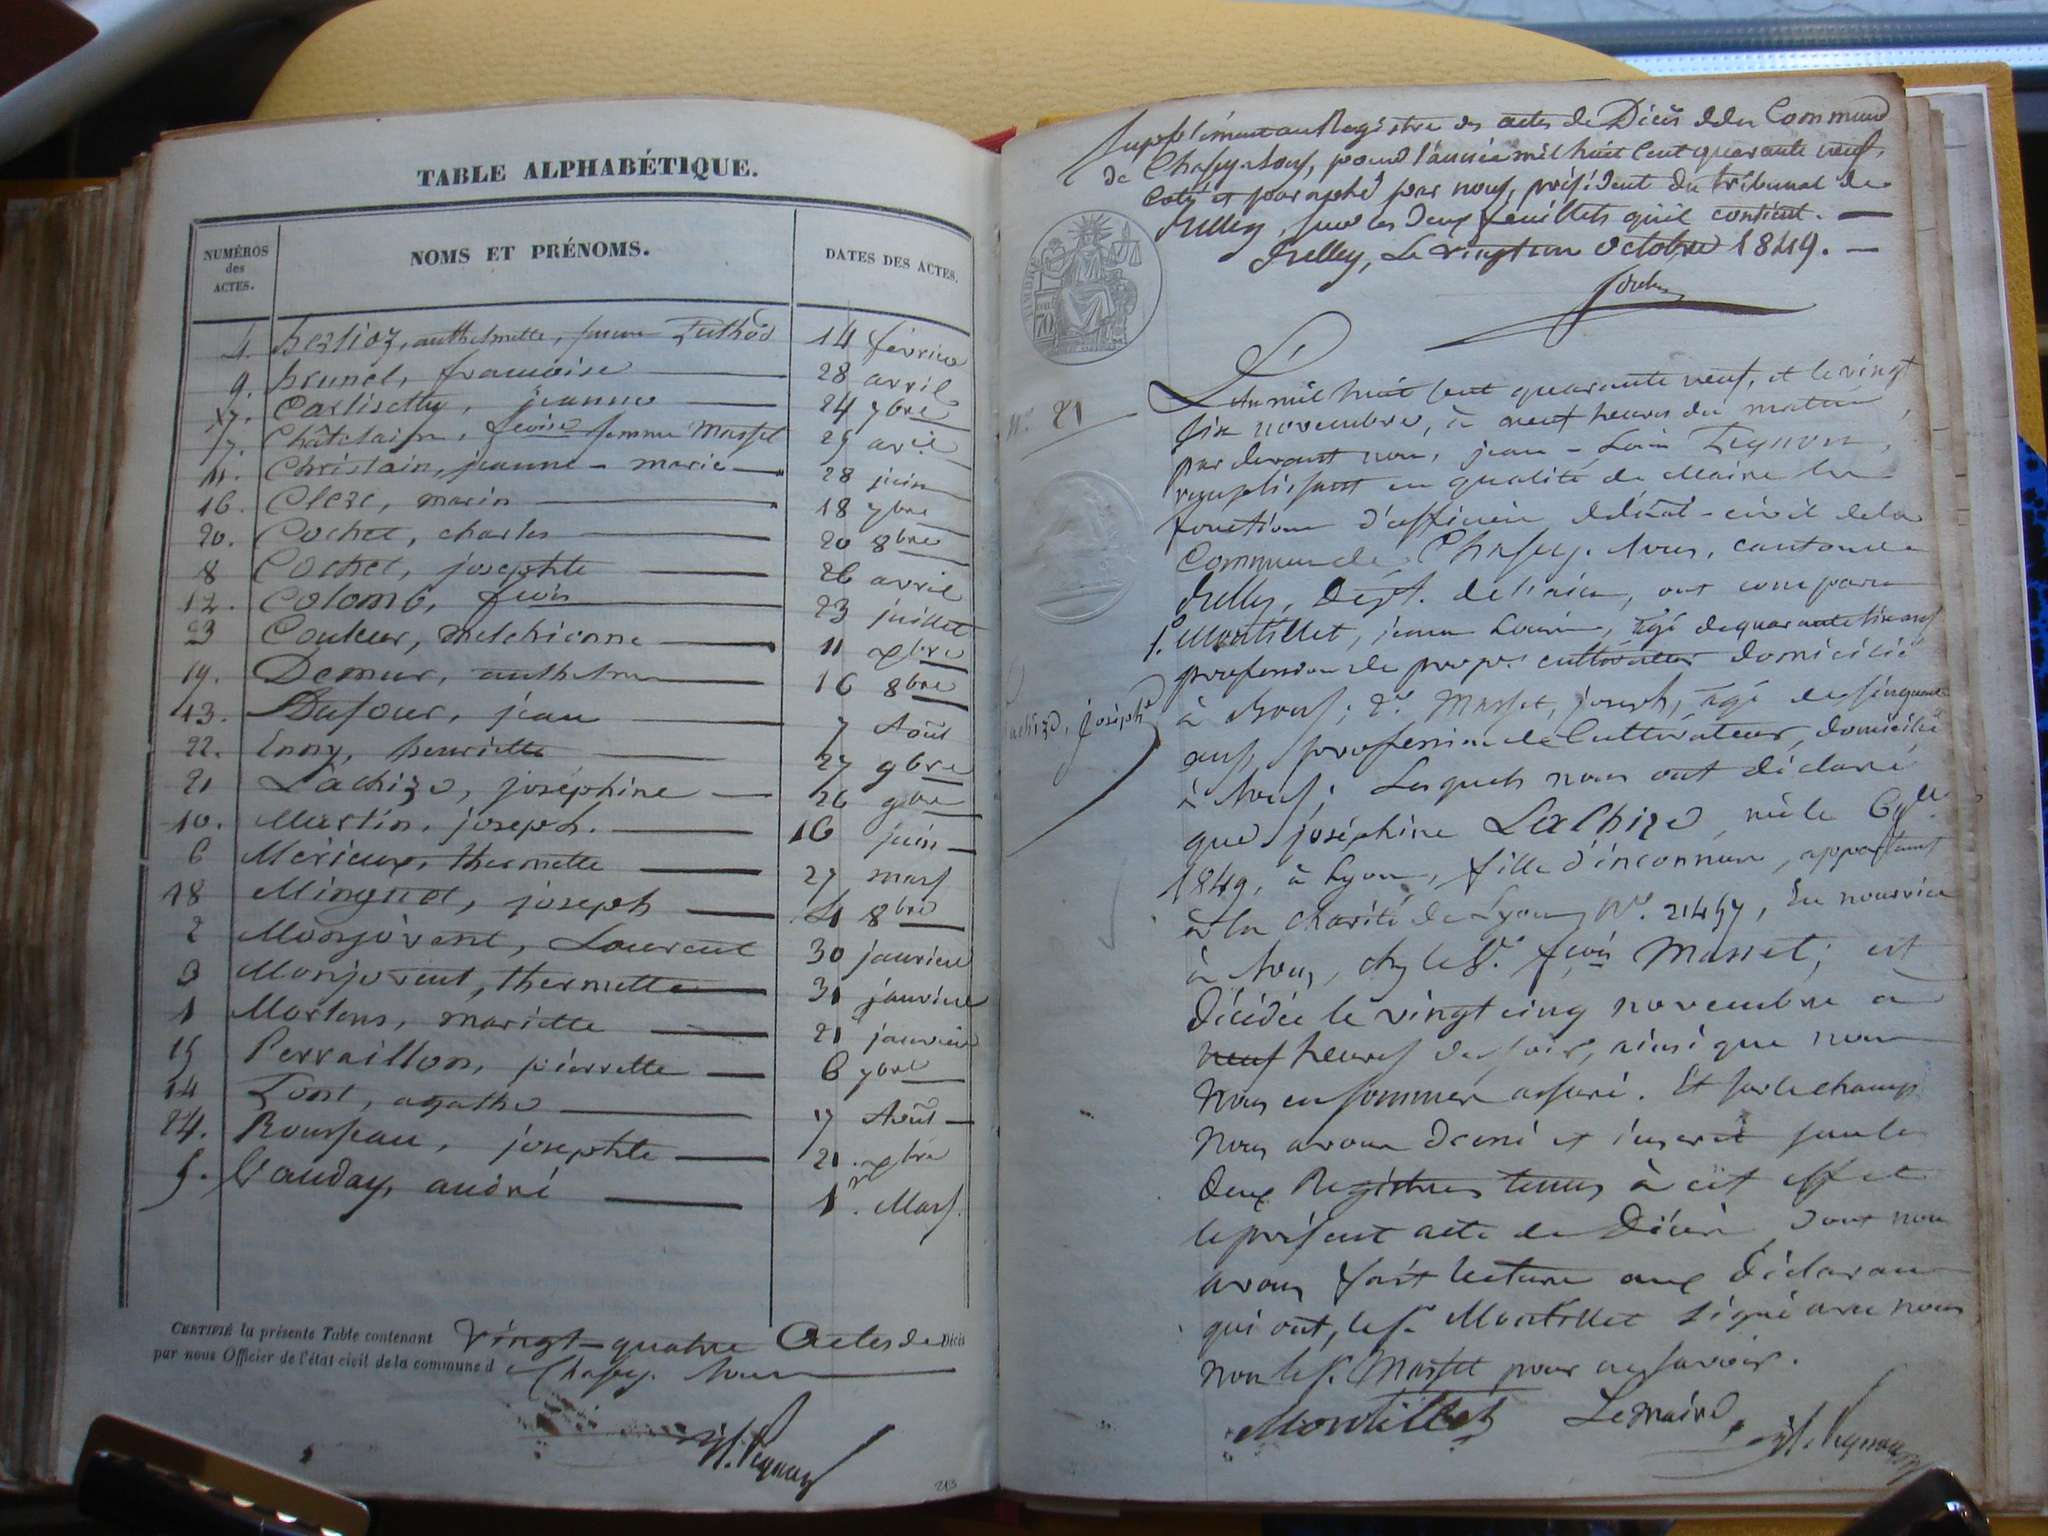 TABLE ALPHABÉTIQUE.
NUMÉROS
des
ACTES.
NOMS ET PRÉNOMS.
DATES DES ACTES.
4. Berlioz, anthelmette, femme 14 février
9. Brunel, francoise 28 avril
17. jeanne 24 7bre
7. Châtelain, femme Masset 25 avril
11. Christain, jeanne-marie 28 juin
16. Clerc, marin 18 7bre
20. Cochet, charles 20 8bre
8 Cochet, josephte 26 avril
12. Colomb, fcois 23 juillet
23 Couleur, melchionne 11 xbre
19. Demur, anthelme 16 8bre
13. Dufour, jean 7 Août
22. Enny, henriette 27 9bre
21 Lachize, joséphine 26 9bre
10. Martin, joseph. 16 juin
6 Mérieux, thermette 27 mars
18 Minguet, joseph 11 8bre
2 Monjovent, Laurent 30 janvier
3 Monjovent, thermette 31 janvier
1 mariette 21 janvier
15 Perraillon, pierrette 6 7bre
14 agathe 17 Août
24. Rousseau, josephte 21 xbre
5. Vauday, andré 1er Mars.
CERTIFIÉ la présente Table contenant vingt-quatre Actes de Décès
par nous Officier de l'état civil de la commune d e Chazey-Bons
213
Supplément au Registre des actes de Décès de la Commune
de Chazey-bons, pour l'année mil huit cent quarante neuf,
Coté et paraphé par nous, président du tribunal de
Belley, sur les deux feuillets qu'il contient.
Belley, Le vingt un octobre 1849.
TIMBRE
70
N.° 21
L'an mil huit cent quarante neuf, et le vingt
six novembre, à neuf heures du matin,
par devant nous, jean-Louis Peysson,
remplissant en qualité de Maire les
fonctions d'officier de l'état-civil de la
Commune de Chazey-Bons, canton de
Belley, Dépt. de l'ain, ont comparu
1.° Montillet, jean Louis, âgé de quarante six ans
profession de propre. cultivateur domicilié
à Bons; 2.° Masset, joseph, âgé de cinquante
ans, profession de Cultivateur, domicilié
à Bons; Lesquels nous ont déclaré
Lachize, joséphe
que joséphine Lachize, née le 6
1849, à Lyon, fille d'inconnus, appartenant
à la charité de Lyon N.° 21457, En nourrice
à Bons, chez le Sr. fcois Masset; est
décédée le vingt cinq novembre à
neuf heures du soir, ainsi que nous
nous en sommes assuré. Et sur le champ
nous avons dressé et inscrit sur les
deux Registres tenus à cet effet
le présent acte de Décès, dont nous
avons fait lecture aux déclarants
qui ont, le Sr. Montillet signé avec nous
non le Sr. Masset pour ne savoir.
Montillet Le maire